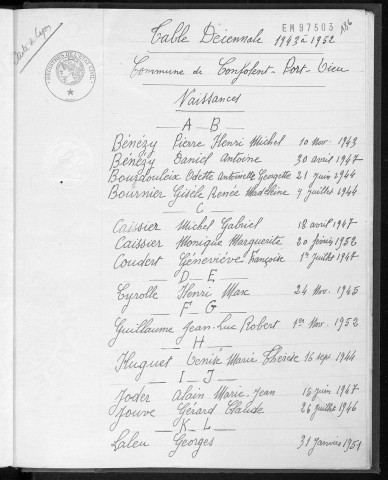 EM 97503
186
Table Décennale 1943 à 1952
Commune de Confolent-Port-Dieu
Naissances
A _ B
Bénézy Pierre Henri Michel 10 Nov. 1943
Bénézy Daniel Antoine 30 avril 1947
Bourdouleix Odette Antoinette Georgette 21 juin 1944
Bournier Gisèle Renée Madeleine 9 juillet 1944
C
Caissier Michel Gabriel 18 avril 1947
Caissier Monique Marguerite 20 février 1952
Coudert Géneviève Françoise 1er juillet 1947
D _ E
Eyrolle Henri Max 24 Nov. 1945
F _ G
Guillaume Jean-Luc Robert 1er Nov. 1952
H
Huguet Denise Marie Thérèse 16 sept 1944
I _ J
Joder Alain Marie-Jean 16 juin 1947
Jouve Gérard Claude 26 juillet 1946
K _ L
Laleu Georges 31 Janvier 1951